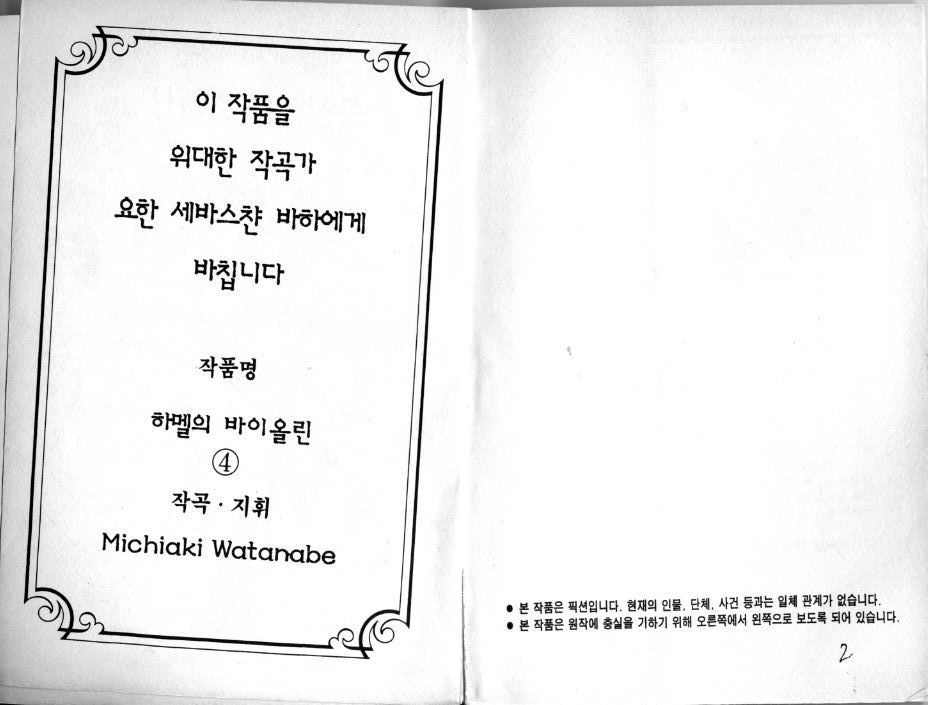 이 작품을
위대한 작곡가
요한 세바스챤 바하에게
바칩니다
작품명
하멜의 바이올린
④
작곡 · 지휘
Michiaki Watanabe
● 본 작품은 픽션입니다. 현재의 인물, 단체, 사건 등과는 일체 관계가 없습니다.
● 본 작품은 원작에 충실을 기하기 위해 오른쪽에서 왼쪽으로 보도록 되어 있습니다.
2